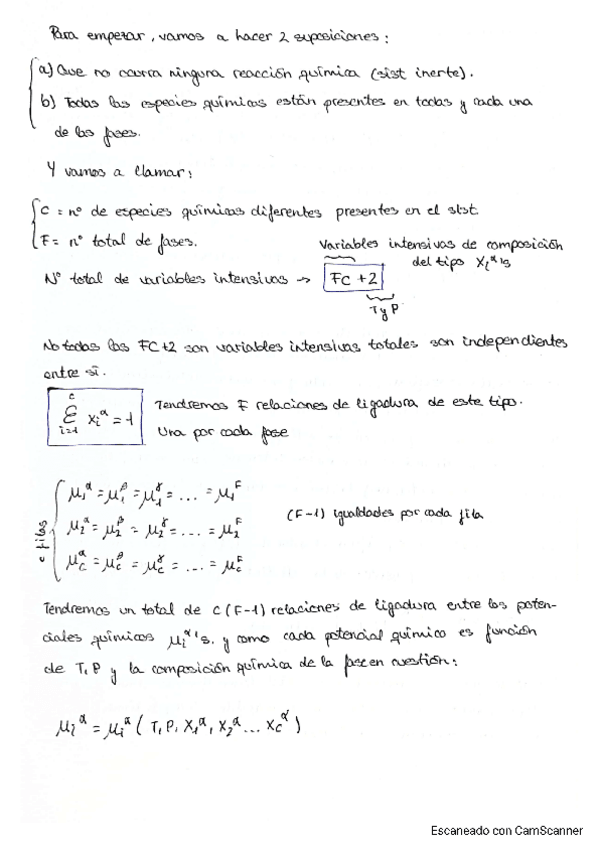 Para empezar, vamos a hacer 2 suposiciones:
a) Que no ocurra ninguna reacción química (sist inerte).
b) Todas las especies químicas están presentes en todas y cada una
de las fases.
Y vamos a llamar:
C = nº de especies químicas diferentes presentes en el sist.
F = nº total de fases.
Variables intensivas de composición
del tipo Xᵢᵅ's
Nº total de variables intensivas → FC + 2
T y P
No todas las FC+2 son variables intensivas totales son independientes
entre sí.
∑ᵢ₌₁ᶜ xᵢᵅ = 1
Tendremos F relaciones de ligadura de este tipo.
Una por cada fase
c filas
μ₁ᵅ = μ₁ᵝ = μ₁ᵞ = ... = μ₁ᶠ
μ₂ᵅ = μ₂ᵝ = μ₂ᵞ = ... = μ₂ᶠ
(F-1) igualdades por cada fila
μcᵅ = μcᵝ = μcᵞ = ... = μcᶠ
Tendremos un total de C(F-1) relaciones de ligadura entre los poten-
ciales químicos μᵢᵅ's. y como cada potencial químico es función
de T, P y la composición química de la fase en cuestión:
μᵢᵅ = μᵢᵅ (T, P, X₁ᵅ, X₂ᵅ ... Xcᵅ)
Escaneado con CamScanner